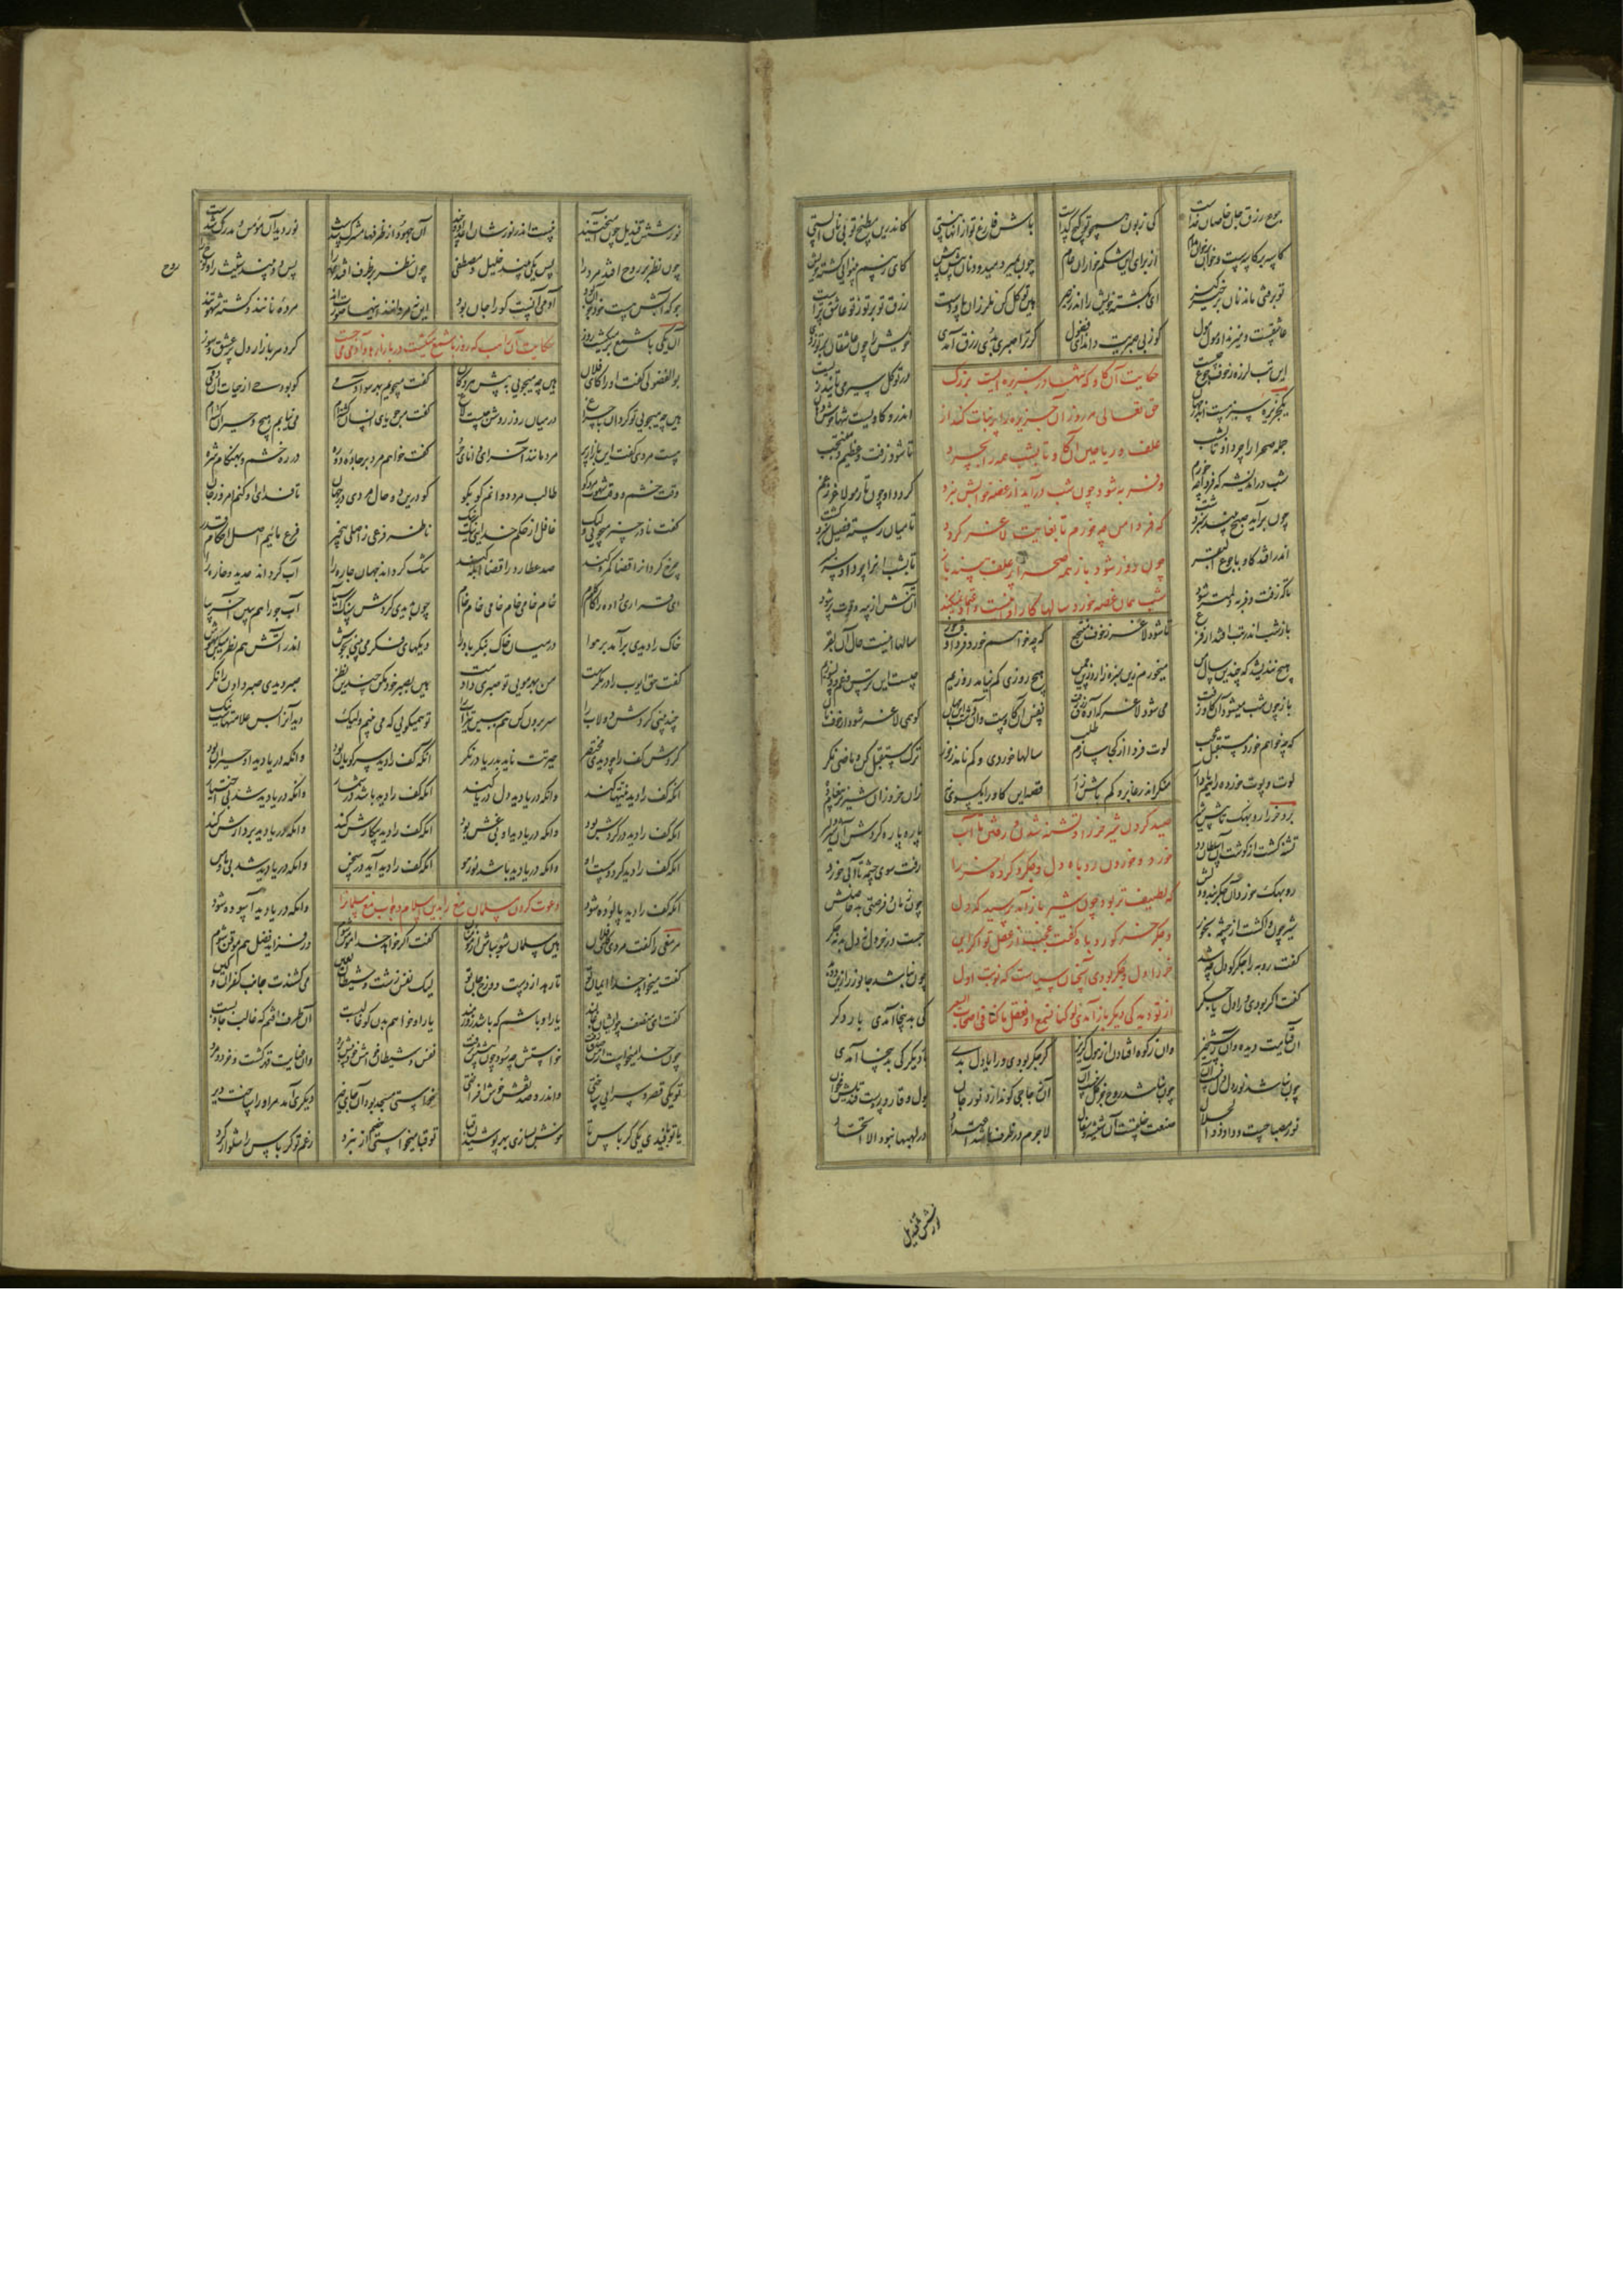 جوع رزق جان خاصان خداست کی زبون همچو تو گیج گداست باش فارغ تو از آنها نیستی کاندرین مطبخ تو بی نان ایستی
کاسه بر کاسه‌ست و خوان بر خوان مدام از برای این شکم خواران عام چون بمیرد میدود نان پیش پیش کای ز بیم بینوایی کشته خویش
تو برفتی ماند نان برخیز گیر ای بکشته خویش را اندر زحیر هین توکل کن ملرزان پا و دست رزق تو بر تو ز تو عاشق ترست
عاشقست و میزند او مول مول کو ز بی صبریت داند ای فضول گر ترا صبری بدی رزق آمدی خویش را چون عاشقان بر تو زدی
این تب لرزه ز خوف جوع چیست در توکل سیر می تانند زیست
حکایت آن گاو که تنها در جزیره ایست بزرگ
حق تعالی هر روز آن جزیره را پر نبات کند از
علف و ریاحین آن گاو تا بشب همه را بچرد و
فربه شود چون شب درآید از غصه خوابش نبرد
که فردا من چه خورم تا بغایت لاغر گردد
چون روز شود باز همه صحرا پر علف بیند باز
شب همان غصه خورد سالها کار او اینست
یک جزیره سبز هست اندر جهان اندرو گاویست تنها خوش دهان
جمله صحرا را چرد او تا بشب تا شود زفت و عظیم و منتجب
شب در اندیشه که فردا چه خورم گردد او چون تار مو لاغر ز غم
چون برآید صبح بیند سبز دشت تا میان رسته قصیل سبز و کشت
اندر افتد گاو با جوع البقر تا بشب آنرا چرد او سر بسر
باز زفت و فربه و لمتر شود آن تنش از پیه و قوت پر شود
باز شب اندر تب افتد از فزع تا شود لاغر ز خوف منتجع که چه خواهم خورد فردا وقت خور سالها اینست حال آن بقر
هیچ نندیشد که چندین سال من میخورم زین سبزه زار و زین چمن هیچ روزی کم نیامد روزیم چیست این ترس و غم و دلسوزیم
باز چون شب میشود آن گاو زفت می شود لاغر که آوه رزق رفت نفس آن گاوست و آن دشت این جهان کو همی لاغر شود از خوف نان
که چه خواهم خورد مستقبل عجب لوت فردا از کجا سازم طلب سالها خوردی و کم نامد ز خور ترک مستقبل کن و ماضی نگر
لوت و پوت خورده را هم یاد آر منگر اندر غابر و کم باش زار قصه این گاو را یک سوی نه زان خر و زان شیر
صید کردن شیر خر را و تشنه شدن و رفتن تا آب
خورد و خوردن روباه دل و جگر و گرده خر را
که لطیفتر بود چون شیر باز آمد پرسید که دل
و جگر خر کو روباه گفت
خر را دل و جگر بودی آنچنان سیاست که نوبت اول
از تو دید کی دیگر باز آمدی لو کنا نسمع او نعقل ما کنا فی اصحاب السعیر
برد خر را روبهک تا پیش شیر پاره پاره کردش آن شیر دلیر
تشنه گشت از کوشش آن سلطان دد رفت سوی چشمه تا آبی خورد
روبهک خورد آن جگربند و دلش چون فرصتی شد حاصلش
شیر چون واگشت از چشمه بخور جست در خر دل نه دل بد نه جگر
گفت روبه را جگر کو دل چه شد چون نباشد جانور را زین دو بد
گفت اگر بودی ورا دل یا جگر کی بدینجا آمدی بار دگر
آن قیامت دیده و آن رستخیز وان ز کوه افتادن و هول گریز گر جگر بودی ورا یا دل بدی بار دیگر کی بدینجا آمدی
چون نباشد نور دل دل نیست آن چون نباشد روح جز گل نیست آن آن زجاجی کو ندارد نور جان بول و قاروره‌ست قندیلش مخوان
نور مصباحست داد ذوالجلال صنعت خلقست آن شیشه و سفال لاجرم در ظرف باشد اعتداد در لهبها نبود الا اتحاد
نور شش قندیل
نور شش قندیل چون آمیختند نیست اندر نورشان اعداد و چند آن جهود از ظرفها مشرک شدست نور دید آن مؤمن و مدرک شدست
چون نظر بر روح افتد مرد را پس یکی بیند خلیل و مصطفی چون نظر بر ظرف افتد روح را پس دو بیند شیث را و نوح را
روح
جو که آبش هست جو خود آن بود آدمی آنست کو را جان بود این نه مردانند اینها صورت اند مرده نانند و کشته شهوتند
حکایت آن راهب که روز با شمع میگشت در بازار و آدمی می جست
آن یکی با شمع بر میگشت روز گرد هر بازار دل پر عشق و سوز
بوالفضولی گفت او را کای فلان هین چه میجویی به پیش هر دکان گفت میجویم بهر سو آدمی کو بود حی از حیات آن دمی
هین چه میجویی تو گردان با چراغ در میان روز روشن چیست لاغ گفت من جویای انسان گشته ام می نیابم هیچ و حیران گشته ام
هست مردی گفت این بازار پر مردمانند آخر ای دانای حر گفت خواهم مرد بر جاده دو ره در ره خشم و بهنگام شره
وقت خشم و وقت شهوت مرد کو طالب مردی دوانم کو بکو کو درین دو حال مردی در جهان تا فدای او کنم امروز جان
گفت نادر چیز میجویی ولیک غافل از حکم خدایی نیک نیک ناظر فرعی ز اصلی بیخبر فرع ماییم اصل احکام قدر
چرخ گردان را قضا گمره کند صد عطارد را قضا ابله کند تنگ گرداند جهان چاره را آب گرداند حدید و خاره را
ای قراری داده ره را گام گام خام خامی خام خامی خام خام چون بدیدی گردش سنگ آسیا آب جو را هم ببین آخر بیا
خاک را دیدی برآمد بر هوا در میان خاک بنگر باد را دیگهای فکر می بینی بجوش اندر آتش هم نظر میکن بهوش
گفت حق ایوب را در مکرمت من بهر مویی تو صبری دادمت هین بصبر خود مکن چندین نظر صبر دیدی صبر دادن را نگر
چند بینی گردش دولاب را سر برون کن هم ببین تیز آب را تو همیگویی که می بینم ولیک دید آنرا بس علامتهاست نیک
گردش کف را چو دیدی مختصر حیرتت باید بدریا در نگر آنکه کف را دید سر گویان بود وانکه دریا دید او حیران بود
آنکه کف را دید نیتها کند وانکه دریا دید دل دریا کند آنکه کف را دید باشد در شمار وانکه دریا دید شد بی اختیار
آنکه کف را دید در گردش بود وانکه دریا دید او بی غش بود آنکه کف را دید پیکارش کند وانکه دریا دید بر دارش کند
آنکه کف را دید گردد مست او وانکه دریا دید باشد نور هو آنکه کف را دید آید در سخن وانکه دریا دید شد بی ما و من
آنکه کف را دید پالوده شود وانکه دریا دید آسوده شود
دعوت کردن مسلمان مغ را بدین اسلام و جواب مغ مسلمان را
مر مغی را گفت مردی کای فلان هین مسلمان شو بباش از مؤمنان گفت اگر خواهد خدا مؤمن شوم ور فزاید فضل هم موقن شوم
گفت میخواهد خدا ایمان تو تا رهد از دست دوزخ جان تو لیک نفس زشت و شیطان لعین می کشندت جانب کفران و کین
گفت ای منصف چو ایشان غالبند یار او باشم که باشد زورمند یار او خواهم بدن کو غالبست آن طرف افتم که غالب جاذبست
چون خدا میخواست از من صدق زفت خواست او چه سود چون پیشش نرفت نفس و شیطان خواست خود را پیش برد وان عنایت قهر گشت و خرد و مرد
تو یکی قصر و سرایی ساختی واندرو صد نقش خوش افراختی خواستی مسجد بود آن جای خیر دیگری آمد مر او را ساخت دیر
یا تو بافیدی یکی کرباس تا خوش بسازی بهر پوشیدن قبا تو قبا میخواستی خصم از نبرد رغم تو کرباس را شلوار کرد